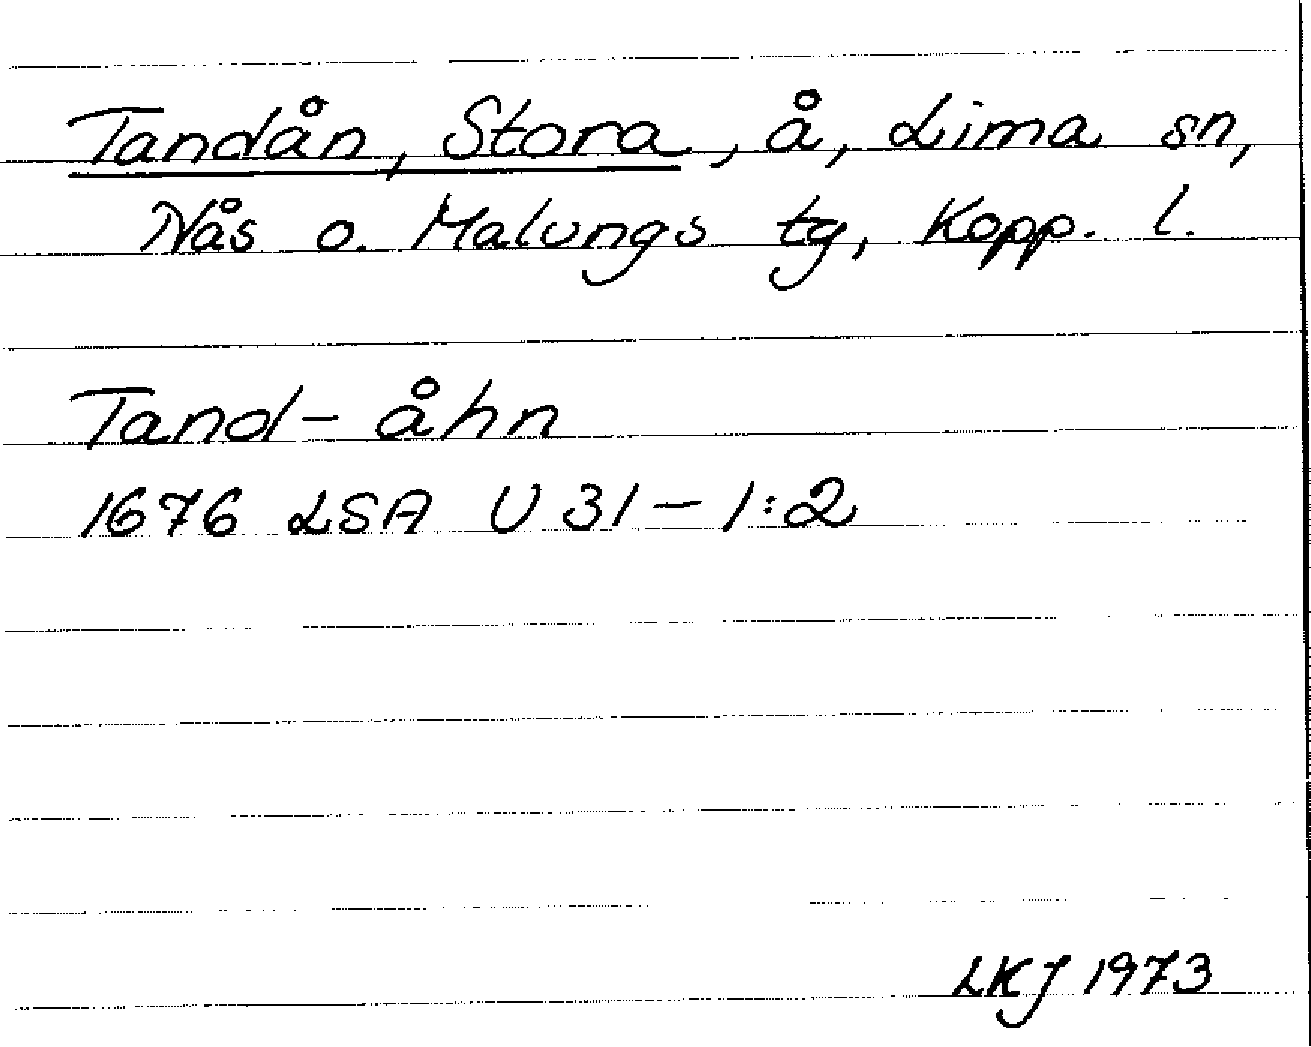 Tandån, Stora, å, Lima sn,
Nås o. Malungs tg, Kopp. l.
Tand-åhn
1676 LSA U 31-1:2
LKJ 1973